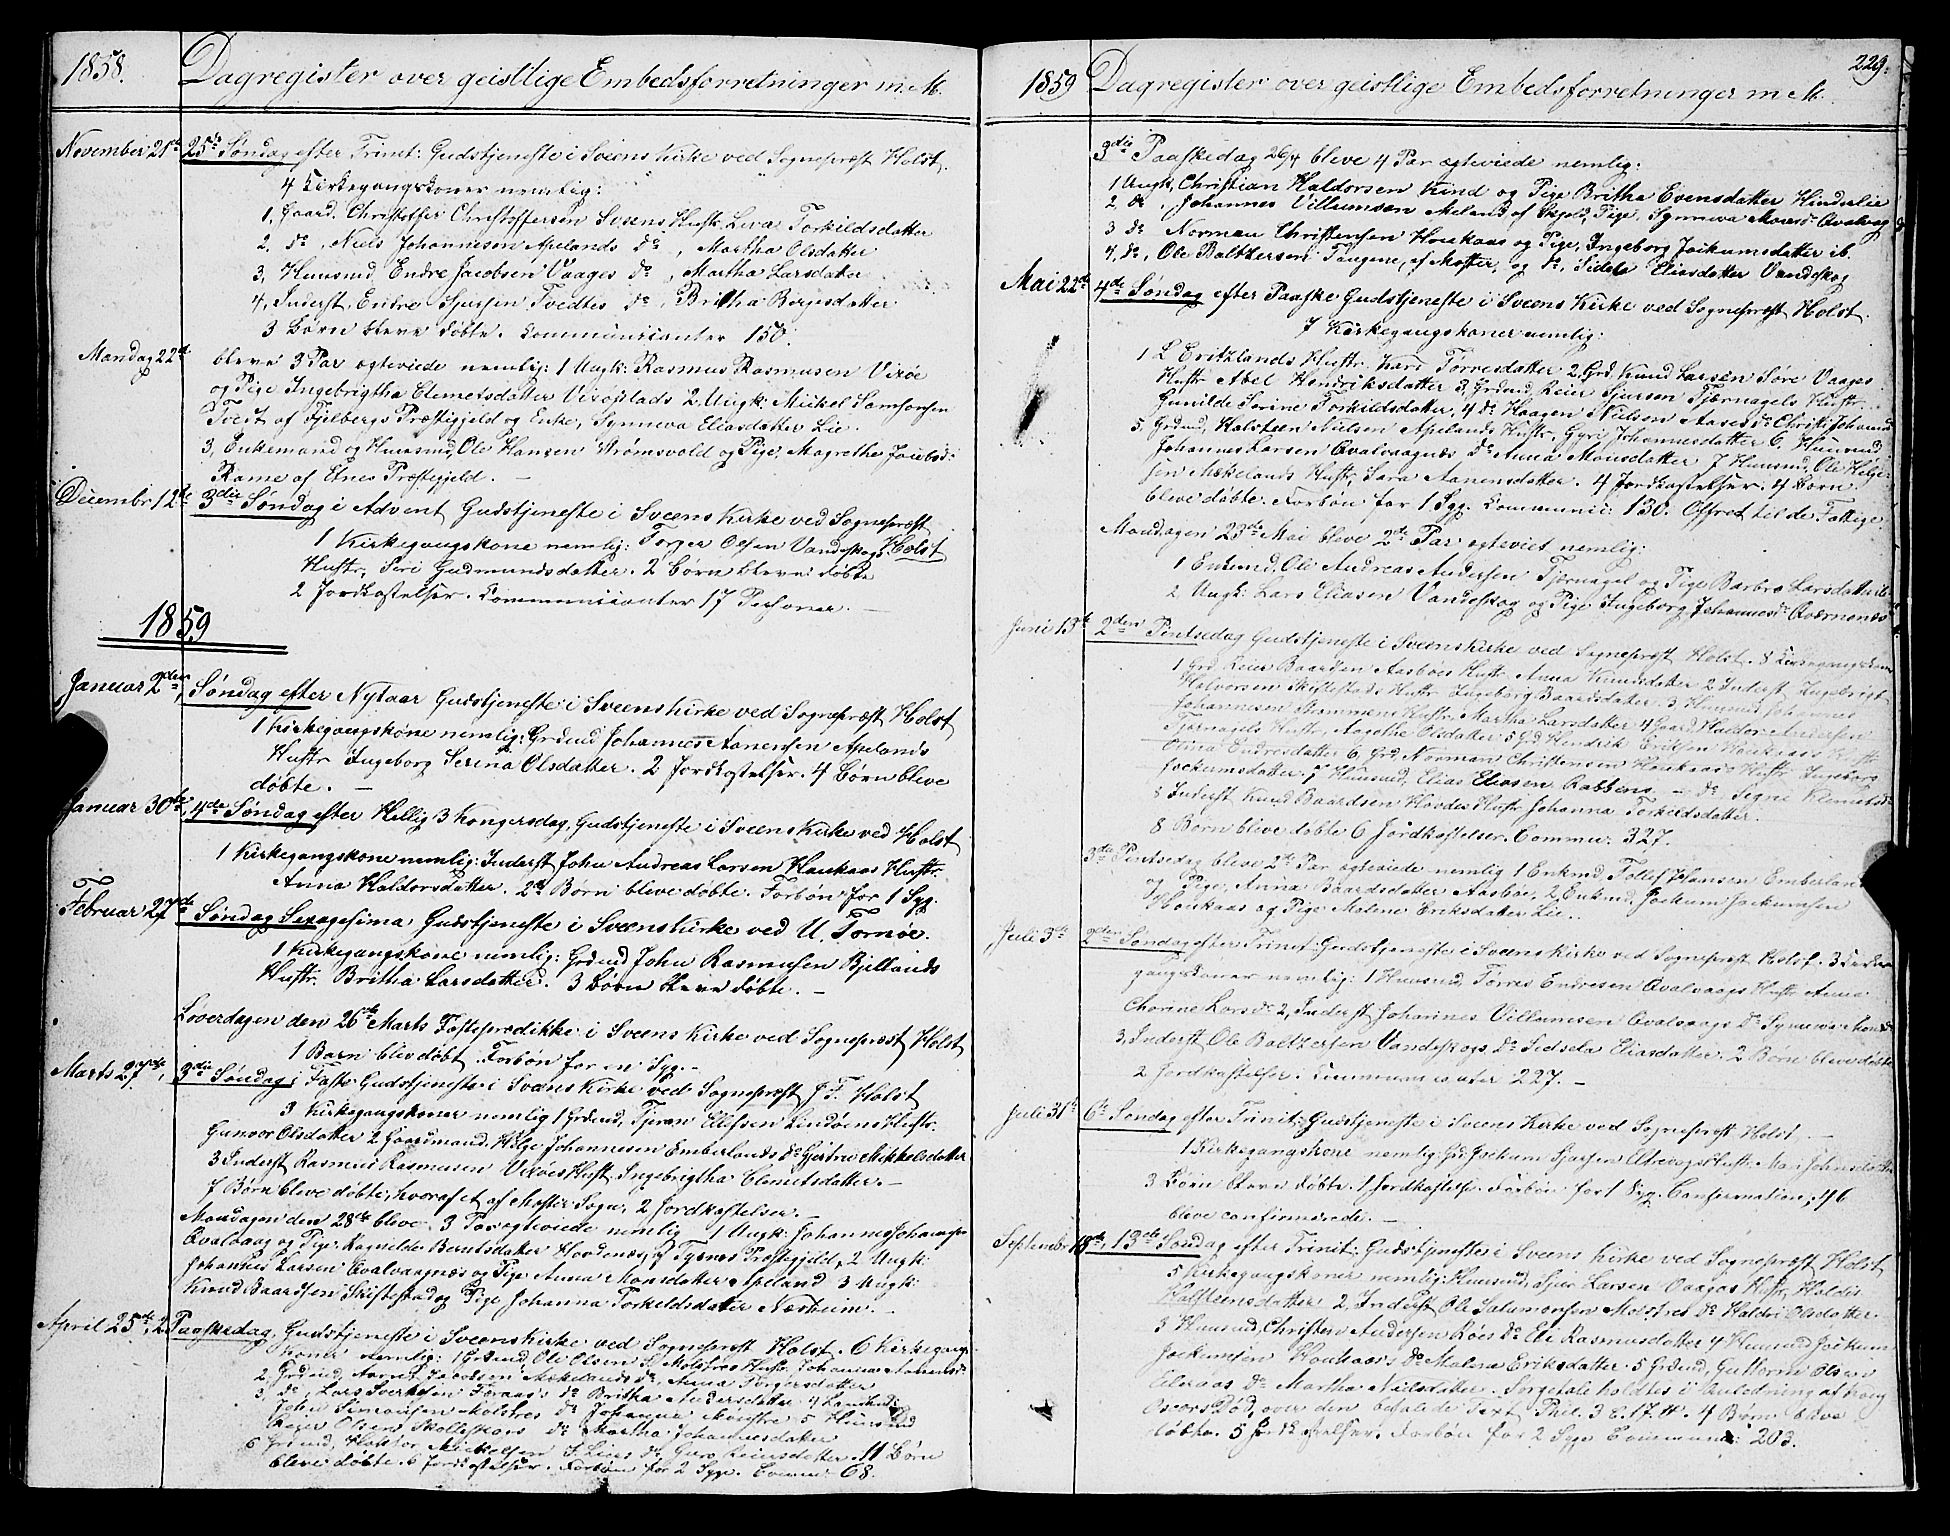 1858. Dagregister over geistlige Embedsforretninger m. M.
November 21de 25de Søndag efter Trinit: Gudstjeneste i Sveens Kirke ved Sognepræst Holst.
4 Kirkegangskoner nemlig:
1, Gaard. Christoffer Christoffersen Sveens Hustr. Liva Torkildsdatter
2, do, Niels Johannesen Apelands do, Martha Olsdatter
3, Huusmd, Endre Jacobsen Vaages do, Martha Larsdatter
4, Inderst, Endre Sjursen Tvedtes do, Britha Børgesdatter
3 Børn bleve døbte. Communicanter 150.
Mandag 22de bleve 3 Par egteviede nemlig: 1 Ungk: Rasmus Rasmusen Vixøe
og Pige Ingebrigtha Clemetsdatter Vixøplads 2 Ungk: Mickel Samsonsen
Tvedt af Fjelbergs Præstegjeld og Enke, Synneva Eliasdatter Lie.
3, Enkemand og Huusmd, Ole Hansen Strømsvold og Pige, Magrethe Jacobsd:
Rame af Etnes Præstegjeld. –
Decembr. 12te 3die Søndag i Advent Gudstjeneste i Sveens Kirke ved Sognepræst
Holst
1 Kirkegangskone nemlig: Torger Olsen Vandeskogs
Hustr, Siri Gudmundsdatter. 2 Børn bleve døbte
2 Jordkastelser. Communicanter 17 Personer. –
1859
Januar 2den, Søndag efter Nytaar Gudstjeneste i Sveens Kirke ved Sognepræst Holst
1 Kirkegangskone nemlig: Grdmd Johannes Aanensen Apelands
Hustr Ingeborg Serina Olsdatter. 2 Jordkastelser. 4 Børn bleve
døbte. –
Januar 30te, 4de Søndag efter Hellig 3 Kongersdag, Gudstjeneste i Sveens Kirke ved Holst
1 Kirkegangskone nemlig: Inderst John Andreas Larsen Haukaas Hustr.
Anna Haldorsdatter. 2de Børn bleve døbte. Forbøn for 1 Syg.
Februar 27de Søndag Sexagesima Gudstjeneste i Sveens Kirke ved U. Tornøe.
1 Kirkegangskone nemlig: Grdmd John Rasmusen Bjellands
Hustr. Britha Larsdatter. 3 Børn bleve døbte. –
Løverdagen den 26de Marts Fasteprædikke i Sveens Kirke ved Sognepræst Holst
1 Barn blev døbt. Forbøn for en Syg. –
Marts 27de, 3die Søndag i Faste Gudstjeneste i Sveens Kirke ved Sognepræst J. T. Holst
3 Kirkegangskoner nemlig 1 Grdmd, Tjeran Ellefsen Lindøens Hustr.
Gunvor Olsdatter 2 Gaardmand. Helge Johannesen Emberlands do Gjertru Mikkelsdatter
3 Inderst Rasmus Rasmusen Vixøes Hustr. Ingebrigtha Clemetsdatter. –
7 Børn bleve døbte, hvoraf et af Moster Sogn, 2 Jordkastelser. –
Mandagen den 28de bleve 3 Par egteviede nemlig 1 Ungk: Johannes Johannesen
Qvalvaag og Pige Ragnilde Berntsdatter Hovdenæs af Tysnes Præstegjeld, 2 Ungk:
Johannes Larsen Qvalvaagnæs og Pige Anna Monsdatter Apeland 3 Ungk:
Knud Baardsen Skiftestad og Pige Johanna Torkeldsdatter Næsheim. –
April 25de, 2 Paaskedag, Gudstjeneste i Sveens Kirke ved Sognepræst Holst. 6 Kirkegangs-
koner nemlig: 1 Grdmd, Ole Olsen S. Molstres Hustr. Johanna
2, Grdmd, Jacobsen do, Anna Torgersdatter
3, do, Lars Sverkesen Foraas do Britha Andersdatter 4
John Simonsen Molstres do Johanna 5 Huusmd
Reier Olsen do Martha Johannesdatter
6 Grdmd, Mickelsen do Guro Reiersdatter. 11 Børn
bleve døbte. 6 Jordkastelser. Forbøn for 2 Syge. Comm: 68.
1859 Dagregister over geistlige Embedsforretninger m. M. 229.
3die Paaskedag 26/4 bleve 4 Par egteviede nemlig:
1 Ungk, Christian Haldorsen Kind og Pige Britha Evensdatter Hindralie
2 do, Johannes Villumsen Meland af Skjold, Pige, Synneva Qvalvaag
3 do Norman Christensen Houkaas og Pige, Ingeborg Jockumsdatter ib.
4, do, Ole Baltzersen Tangene, af Moster, og do, Sidsela Eliasdatter Vandeskog
Mai 22de 4de Søndag efter Paaske Gudstjeneste i Sveens Kirke ved Sognepræst Holst.
7 Kirkegangskoner nemlig:
1 L Eritzlands Hustr. Kari Torresdatter 2 Grd. Knud Larsen Søre Vaages
Hustr Abel Hendriksdatter 3, Grdmd, Reier Sjursen Tjernagels Hustr.
Gunilde Serine Torkildsdatter, 4 do Haagen Nielsen Aases do Christi Johannesd
5, Grdmd, Halsteen Nielsen Apelands Hustr, Gyri Johannesdatter 6, Huusmd
Johannes Larsen Qvalvaagnæs do Anna Monsdatter 7 Huusmd, Ole Helge-
sen Mekelands Hustr, Sara Aanensdatter. 4 Jordkastelser. 4 Børn
bleve døbte. Forbøn for 1 Syg. Communic: 130. Offret til de Fattige
Mandagen 23de Mai bleve 2de Par egteviet nemlig:
1 Enkemd, Ole Andreas Andersen Tjernagel og Pige Barbro Larsdatter ib
2 Ungk: Lars Eliasen Vandeskog og Pige Ingeborg Johannesd Qværnenæs
Juni 13de 2den Pintsedag Gudstjeneste i Sveens Kirke ved Sognepræst Holst. 8 Kirkegangskoner
1 Grd Reier Baardsen Aasbøes Hustr Anna Knudsdatter 2 Inderst Ingebrigt
Halvorsen Skiftestads Hustr Ingeborg Baardsdatter. 3 Huusmd Johannes
Johannesen Hustr. Martha Larsdatter 4 Gaard Haldor Andersen
Tjernagels Hustr, Aagothe Olsdatter 5 Grd Hendrik Eriksen Houkaas Hustr
Olina Endresdatter 6 Grd, Norman Christensen Houkaas Hustr Ingeborg
Jockumsdatter. 7 Huusmd, Elias Eliasen Rabbens – do Signi Klemetsd:
8 Inderst Knud Baardsen Hovdes Hustr Johanna Torkildsdatter.
8 Børn bleve døbte 6 Jordkastelser. Commu: 327.
3die Pintsedag bleve 2de Par egteviede nemlig 1 Enkmd Tollef Hansen Emberland
og Pige, Anna Baardsdatter Aasbøe, 2 Enkmd Jockum Jockumsen
Houkaas og Pige Malene Eriksdatter Lie. –
Juli 3de 2den Søndag efter Trinit: Gudstjeneste i Sveens Kirke ved Sognepræst Holst. 3 Kirke-
gangskoner nemlig: 1 Huusmd Torres Endresen Qvalvaags Hustr Anna
Chorine Larsd: 2, Inderst Johannes Villumsen Qvalvaags do Synneva
3, Inderst Ole Baltzersen Vandeskogs do Sidsela Eliasdatter. 2 Børn bleve døbte
2 Jordkastelser. Communicanter 227. –
Juli 31te 6te Søndag efter Trinit: Gudstjeneste i Sveens Kirke ved Sognepræst Holst. –
1 Kirkegangskone nemlig: Jockum Sjursen Hustr. Mari Johnsdatter
3 Børn bleve døbte. 1 Jordkastelse. Forbøn for 1 Syg. Confirmation, 46
bleve confirmerede. –
September 18de, 13de Søndag efter Trinit: Gudstjeneste i Sveens Kirke ved Sognepræst Holst
5 Kirkegangskoner nemlig: Huusmd, Larsen Vaages Hustr, Haldis
Halsteensdatter 2, Inderst Ole Salamonsen Molstres do Haldri Olsdatter.
3 Huusmd, Christen Andersen Røes do Eli Rasmusdatter 4 Huusmd Jockum
Jockumsen Houkaas do Malena Eriksdatter. 5 Grdmd, Guttorm Olsen
Eileraas do Martha Nielsdatter. Sørgetale holdtes i Anledning af Kong
Oscars Død, over den befalede Text Phil. 3 C. 17. V. 4 Børn bleve
døbte. 5 Jordkastelser. Forbøn for 2 Syge Communic: 203.